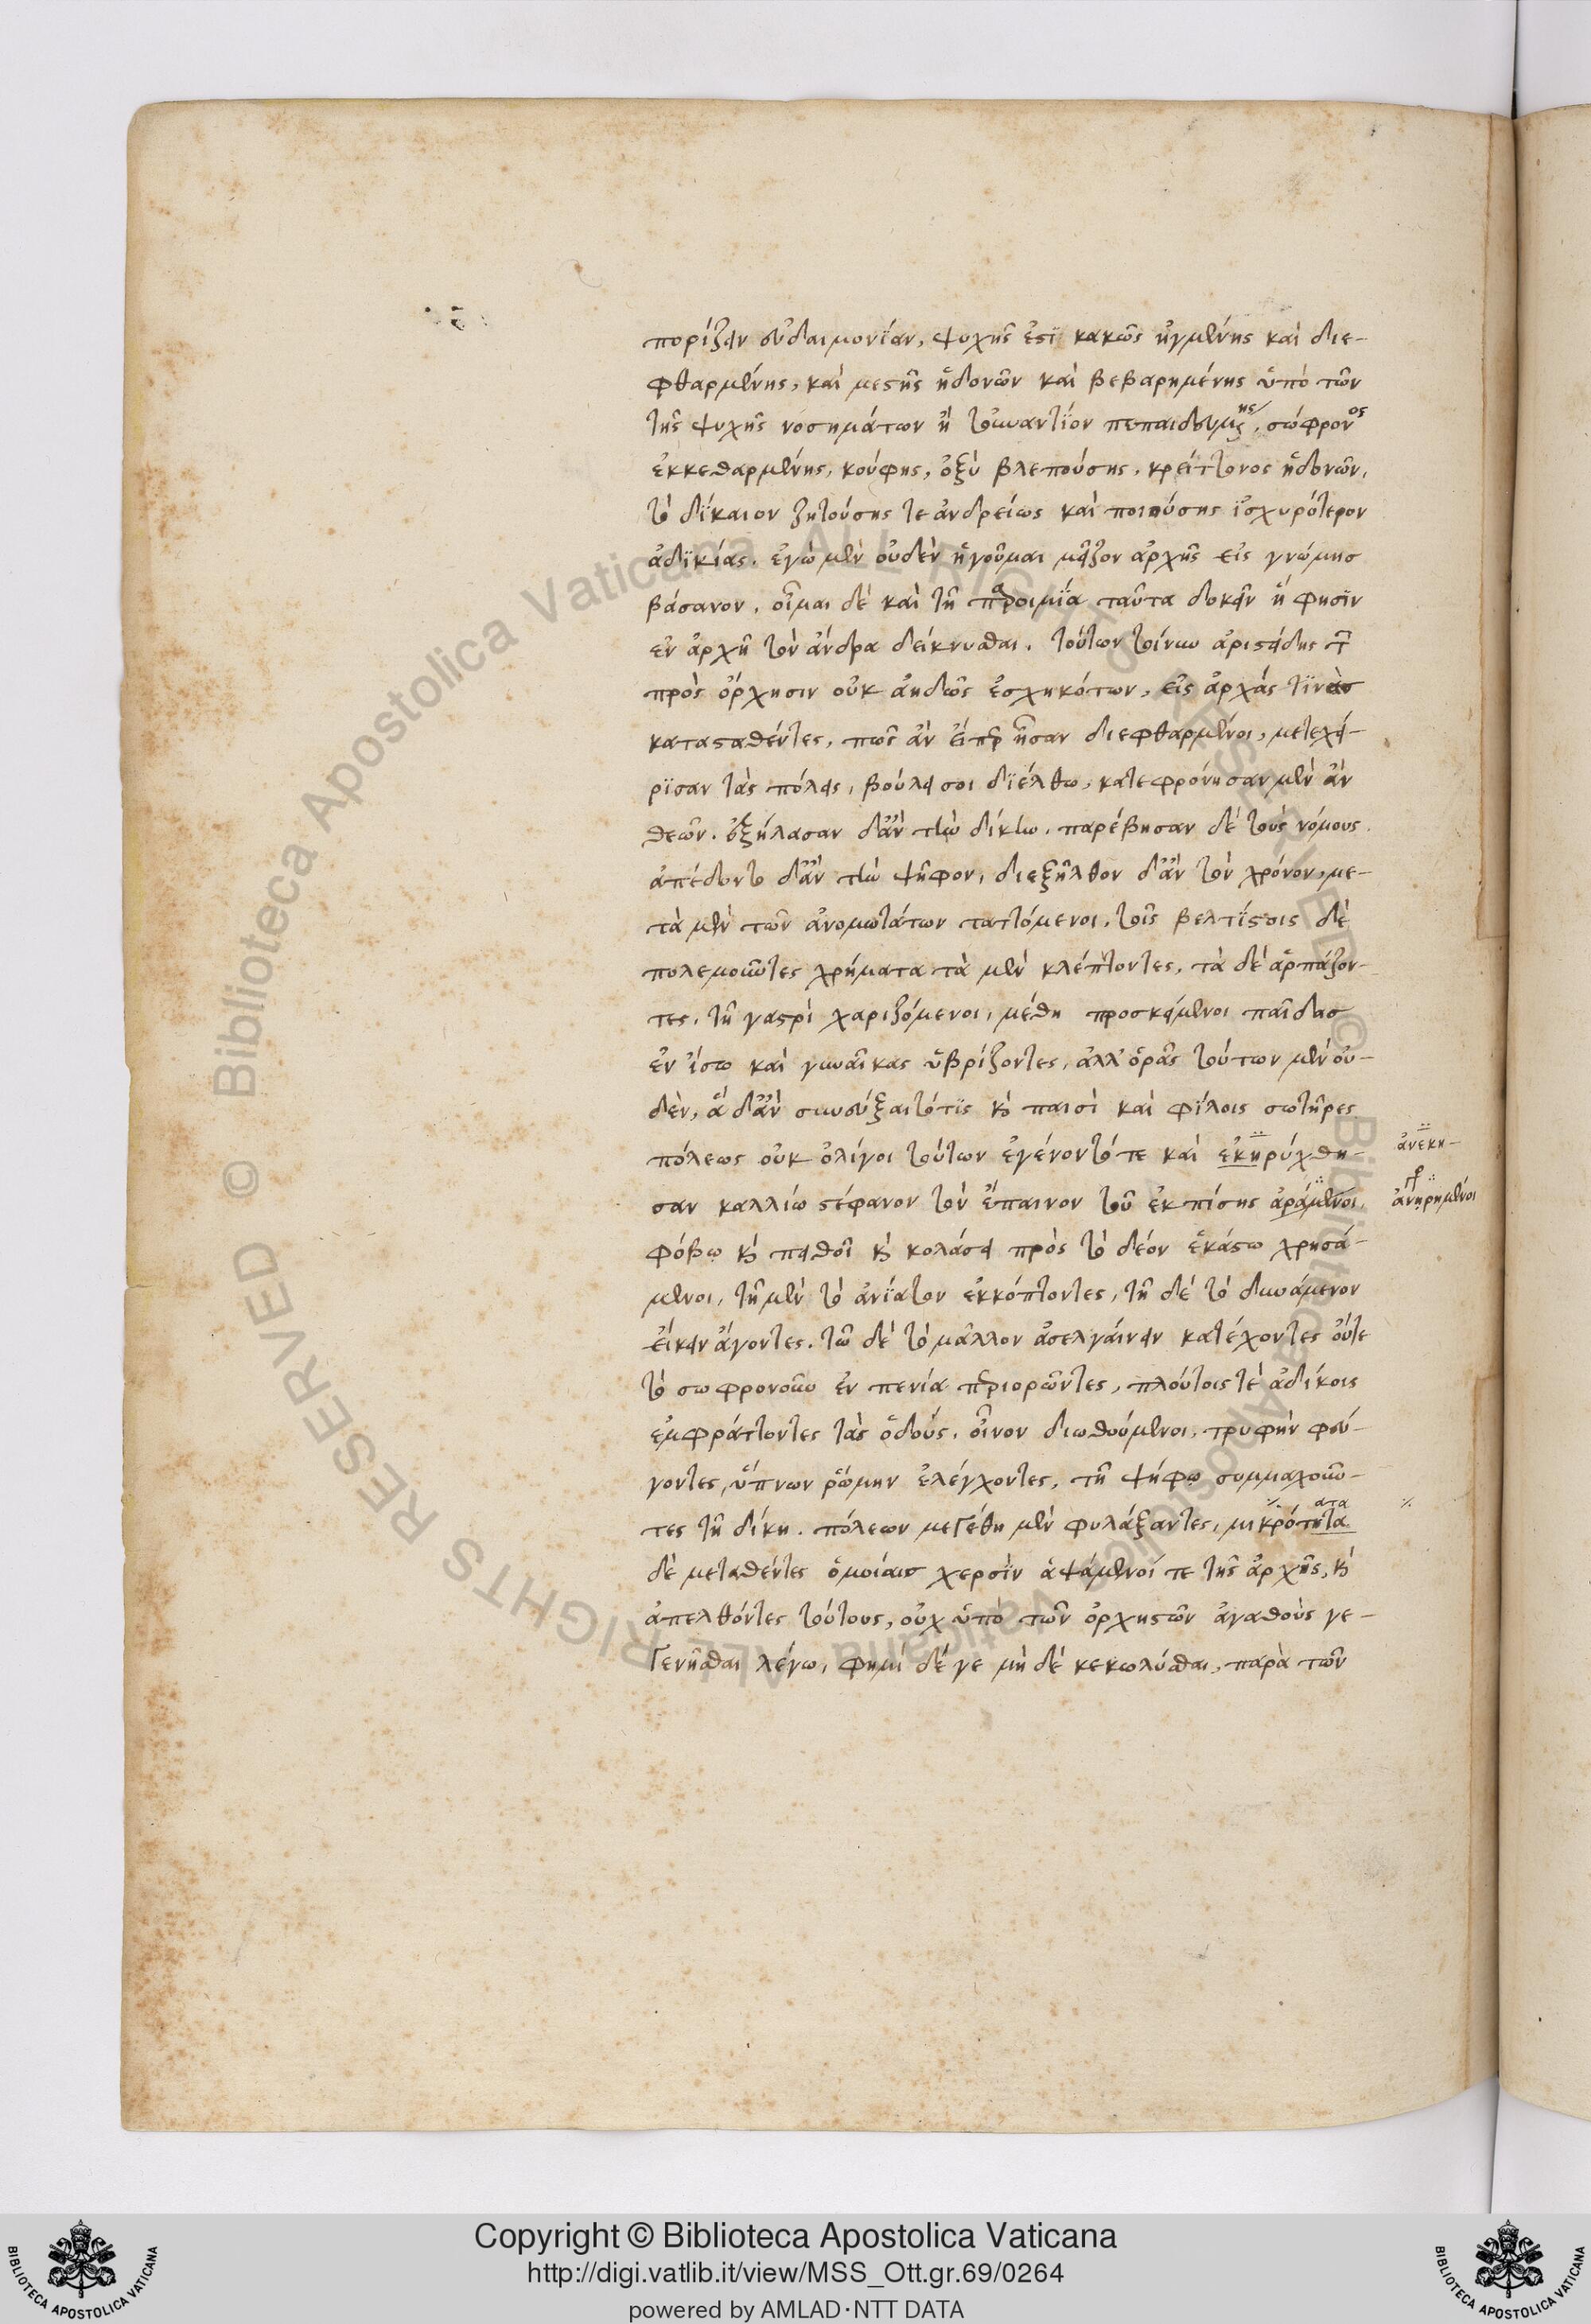 πορίζειν εὐδαιμονΐαν, ψυχῆς ἐστΐ κακῶς ἠγμένης καὶ διε-
φθαρμένης, καὶ μεστῆς ἡδονῶν καὶ βεβαρημένης ὑπὸ τῶν
τῆς ψυχῆς νοσημάτων ἢ τοὐναντΐον πεπαιδευμένης, σώφρονος
ἐκκεθαρμένης, κούφης, ὀξὺ βλεπούσης, κρείττονος ἡδονῶν,
τὸ δΐκαιον ζητούσης τε ἀνδρείως καὶ ποιούσης ἰσχυρότερον
ἀδϊκίας. ἐγὼ μὲν οὐδὲν ἡγοῦμαι μεῖζον ἀρχῆς εἰς γνώμης
βάσανον. οἶμαι δὲ καὶ τῇ παροιμΐα ταῦτα δοκεῖν ἥ φησΐν
ἐν ἀρχῇ τὸν ἄνδρα δείκνυσθαι. τούτων τοίνυν ἀριστείδης τῶν
πρὸς ὄρχησιν οὐκ ἀηδῶς ἐσχηκότων, εἰς ἀρχάς τϊνας
κατασταθέντες, πῶς ἂν εἴπερ ἦσαν διεφθαρμένοι, μετεχεί-
ρϊσαν τὰς πόλεις, βούλει σοι δϊέλθω, κατεφρόνησαν μὲν ἂν
θεῶν. ἐξήλασαν δ' ἂν τὴν δίκην. παρέβησαν δὲ τοὺς νόμους.
ἀπέδοντο δ' ἂν τὴν ψῆφον, διεξῆλθον δ' ἂν τὸν χρόνον, με-
τὰ μὲν τῶν ἀνομωτάτων ταττόμενοι, τοῖς βελτΐστοις δὲ
πολεμοῦντες χρήματα τὰ μὲν κλέπτοντες, τὰ δὲ ἁρπάζον-
τες. τῇ γαστρὶ χαριζόμενοι, μέθη προσκείμενοι παῖδας
ἐν ἴσω καὶ γυναῖκας ὑβρίζοντες, ἀλλ' ὁρᾶς τούτων μὲν οὐ-
δὲν, ἃ δ' ἂν συνεύξαιτό τϊς καὶ παισὶ καὶ φΐλοις σωτῆρες
πόλεως οὐκ ὀλίγοι τούτων ἐγένοντό τε καὶ ἐκηρύχθη-
ἀνεκη-
σαν καλλίω στέφανον τὸν ἔπαινον τοῦ ἐκ πίσης ἀράμενοι,
ἀνῃρημένοι
φόβῳ καὶ πειθοῖ καὶ κολάσει πρὸς τὸ δέον ἑκάστω χρησά-
μενοι, τῇ μὲν τὸ ἀνΐατον ἐκκόπτοντες, τῇ δὲ τὸ δυνάμενον
εἴκειν ἄγοντες. τῶ δὲ τὸ μᾶλλον ἀσελγαίνειν κατέχοντες οὔτε
τὸ σωφρονοῦν ἐν πενία περιορῶντες, πλούτοις τὲ ἀδίκοις
ἐμφράττοντες τὰς ὁδούς. οἶνον διωθούμενοι, τρυφὴν φεύ-
γοντες, ὕπνων ῥώμην ἐλέγχοντες, τῇ ψήφῳ συμμαχοῦν-
τες τῇ δίκη. πόλεων μεγέθη μὲν φυλάξαντες, μικρότητα
ατα
δὲ μεταθέντες ὁμοίαις χερσΐν ἁψάμενοί τε τῆς ἀρχῆς, καὶ
ἀπελθόντες τούτους, οὐχ ὑπὸ τῶν ὀρχηστῶν ἀγαθοὺς γε-
γενῆσθαι λέγω, φημὶ δέ γε μὴ δὲ κεκωλύσθαι, παρὰ τῶν
Copyright © Biblioteca Apostolica Vaticana
http://digi.vatlib.it/view/MSS_Ott.gr.69/0264
powered by AMLAD·NTT DATA
BIBLIOTECA APOSTOLICA VATICANA
BIBLIOTECA APOSTOLICA VATICANA
© Biblioteca Apostolica Vaticana ALL RIGHTS RESERVED
© Biblioteca Apostolica Vaticana ALL RIGHTS RESERVED